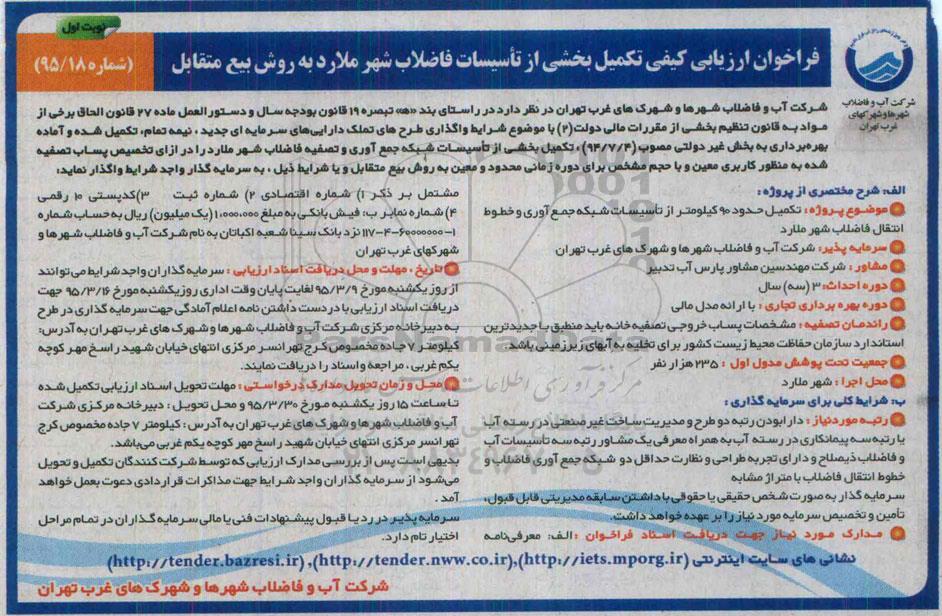 نوبت اول
فراخوان ارزیابی کیفی تکمیل بخشی از تأسیسات فاضلاب شهر ملارد به روش بیع متقابل
(شماره ۹۵/۱۸)
شرکت آب و فاضلاب
شهرها و شهرکهای
غرب تهران
شرکت آب و فاضلاب شهرها و شهرک های غرب تهران در نظر دارد در راستای بند «هـ» تبصره ۱۹ قانون بودجه سال و دستورالعمل ماده ۲۷ قانون الحاق برخی از
مواد به قانون تنظیم بخشی از مقررات مالی دولت(۲) با موضوع شرایط واگذاری طرح های تملک دارایی‌های سرمایه ای جدید ، نیمه تمام، تکمیل شده و آماده
بهره‌برداری به بخش غیر دولتی مصوب (۹۴/۷/۴) ، تکمیل بخشی از تأسیسات شبکه جمع آوری و تصفیه فاضلاب شهر ملارد را در ازای تخصیص پساب تصفیه
شده به منظور کاربری معین و با حجم مشخص برای دوره زمانی محدود و معین به روش بیع متقابل و با شرایط ذیل ، به سرمایه گذار واجد شرایط واگذار نماید:
الف: شرح مختصری از پروژه :
موضوع پروژه : تکمیل حدود ۹۰ کیلومتر از تأسیسات شبکه جمع آوری و خطوط
انتقال فاضلاب شهر ملارد
سرمایه پذیر: شرکت آب و فاضلاب شهرها و شهرک های غرب تهران
مشاور : شرکت مهندسین مشاور پارس آب تدبیر
دوره احداث: ۳ (سه) سال
دوره بهره برداری تجاری : با ارائه مدل مالی
راندمان تصفیه : مشخصات پساب خروجی تصفیه خانه باید منطبق با جدیدترین
استاندارد سازمان حفاظت محیط زیست کشور برای تخلیه به آبهای زیرزمینی باشد
جمعیت تحت پوشش مدول اول : ۲۳۵ هزار نفر
محل اجرا : شهر ملارد
ب: شرایط کلی برای سرمایه گذاری :
رتبه موردنیاز : دارا بودن رتبه دو طرح و مدیریت ساخت غیر صنعتی در رسته آب
یا رتبه سه پیمانکاری در رسته آب به همراه معرفی یک مشاور رتبه سه تأسیسات آب
و فاضلاب ذیصلاح و دارای تجربه طراحی و نظارت حداقل دو شبکه جمع آوری فاضلاب و
خطوط انتقال فاضلاب با متراژ مشابه
سرمایه گذار به صورت شخص حقیقی یا حقوقی با داشتن سابقه مدیریتی قابل قبول،
تأمین و تخصیص سرمایه مورد نیاز را بر عهده خواهد داشت.
مدارک مورد نیاز جهت دریافت اسناد فراخوان : الف: معرفی‌نامه
مشتمل بر ذکر ۱) شماره اقتصادی ۲) شماره ثبت ۳) کدپستی ۱۰ رقمی
۴) شماره نمابر ب: فیش بانکی به مبلغ ۱،۰۰۰،۰۰۰ (یک میلیون) ریال به حساب شماره
۱-۶۰۰۰۰۰۰-۴-۱۱۷ نزد بانک سینا شعبه اکباتان به نام شرکت آب و فاضلاب شهرها و
شهرکهای غرب تهران
تاریخ ، مهلت و محل دریافت اسناد ارزیابی : سرمایه گذاران واجد شرایط می توانند
از روز یکشنبه مورخ ۹۵/۳/۹ لغایت پایان وقت اداری روز یکشنبه مورخ ۹۵/۳/۱۶ جهت
دریافت اسناد ارزیابی با در دست داشتن نامه اعلام آمادگی جهت سرمایه گذاری در طرح
به دبیرخانه مرکزی شرکت آب و فاضلاب شهرها و شهرک های غرب تهران به آدرس:
کیلومتر ۷ جاده مخصوص کرج تهرانسر مرکزی انتهای خیابان شهید راسخ مهر کوچه
یکم غربی ، مراجعه و اسناد را دریافت نمایند.
محل و زمان تحویل مدارک درخواستی : مهلت تحویل اسناد ارزیابی تکمیل شده
تا ساعت ۱۵ روز یکشنبه مورخ ۹۵/۳/۳۰ و محل تحویل : دبیرخانه مرکزی شرکت
آب و فاضلاب شهرها و شهرک های غرب تهران به آدرس : کیلومتر ۷ جاده مخصوص کرج
تهرانسر مرکزی انتهای خیابان شهید راسخ مهر کوچه یکم غربی می‌باشد.
بدیهی است پس از بررسی مدارک ارزیابی که توسط شرکت کنندگان تکمیل و تحویل
می‌شود از سرمایه گذاران واجد شرایط جهت مذاکرات قراردادی دعوت بعمل خواهد
آمد .
سرمایه پذیر در رد یا قبول پیشنهادات فنی یا مالی سرمایه گذاران در تمام مراحل
اختیار تام دارد.
نشانی های سایت اینترنتی (http://iets.mporg.ir),(http://tender.nww.co.ir),(http://tender.bazresi.ir)
شرکت آب و فاضلاب شهرها و شهرک های غرب تهران